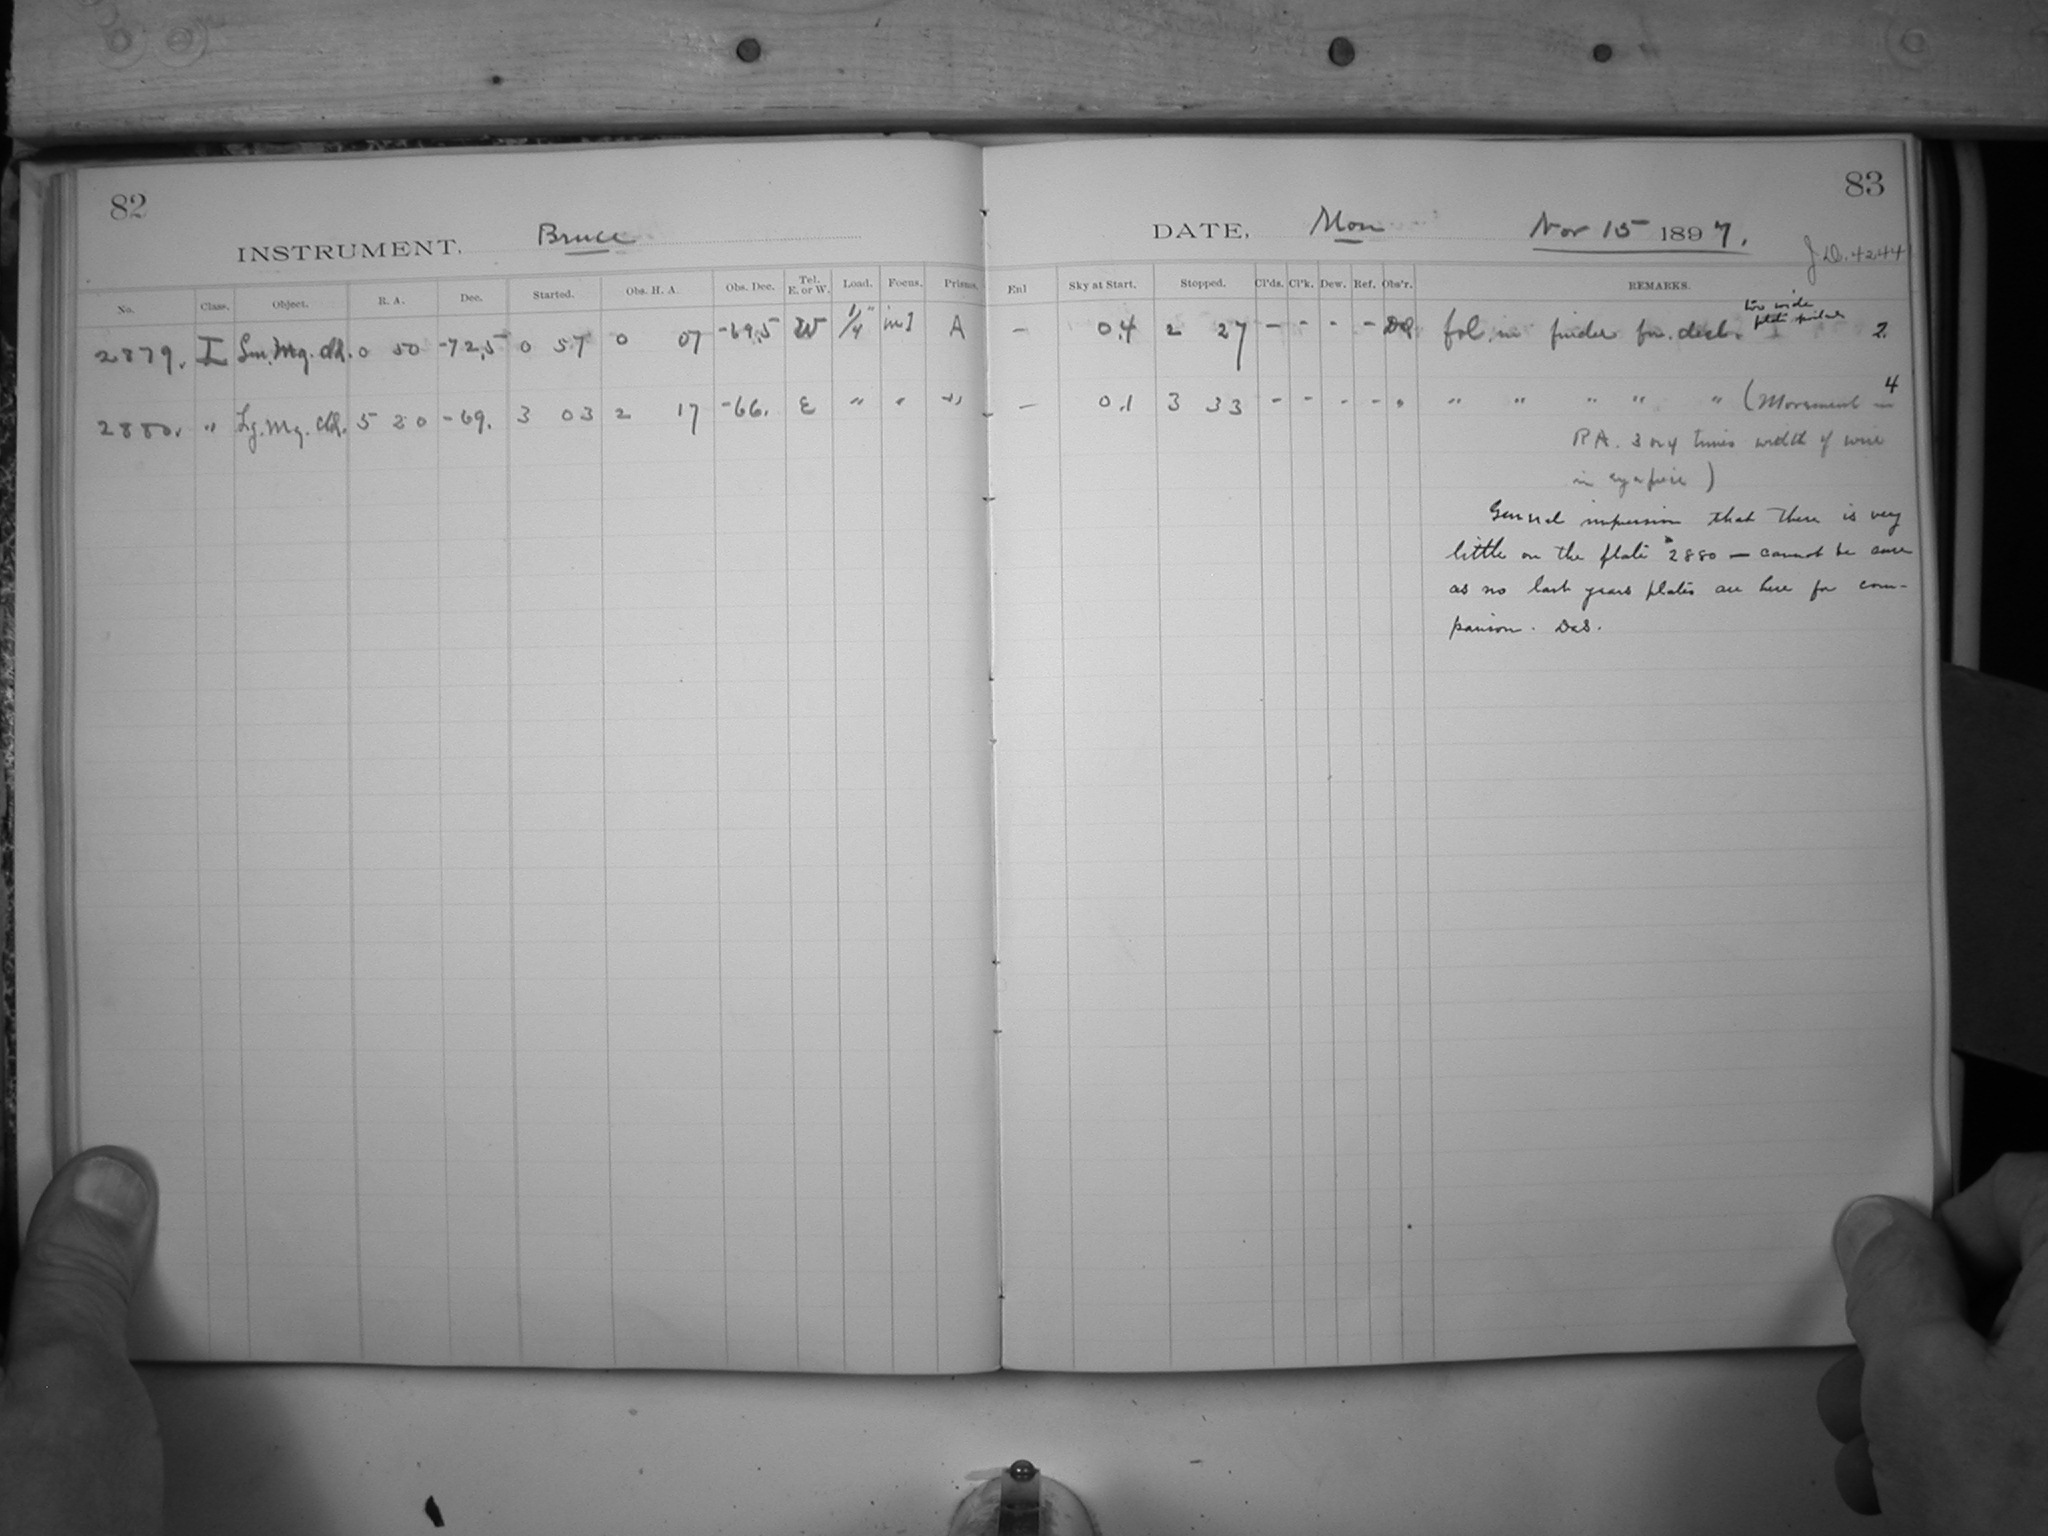 82
INSTRUMENT, Bruce
No. Class. Object. R. A. Dec. Started. Obs. H. A. Obs. Dec. Tel. E. or W. Load. Focus. Prisms.
2879. I Sm. Mg. Cld. 0 50 -72.5 0 57 0 07 -69.5 W 1/4" in I A
2880. " Lg. Mg. Cld. 5 20 -69. 3 03 2 17 -66. E " " "
83
DATE, Mon Nov 15 1897.
J.D. 4244
Enl Sky at Start. Stopped. Cl'ds. Cl'k. Dew. Ref. Obs'r. REMARKS.
— 0.4 2 27 - - - - fol. in finder for. decl. too wide plate 2.
— 0.1 3 33 - - - - " " " " " " (Movement in 4
R A. 3 or 4 times width of wire
in eyepiece)
General impression that there is very
little on the plate 2880 — cannot be sure
as no last years plates are here for com-
parison.